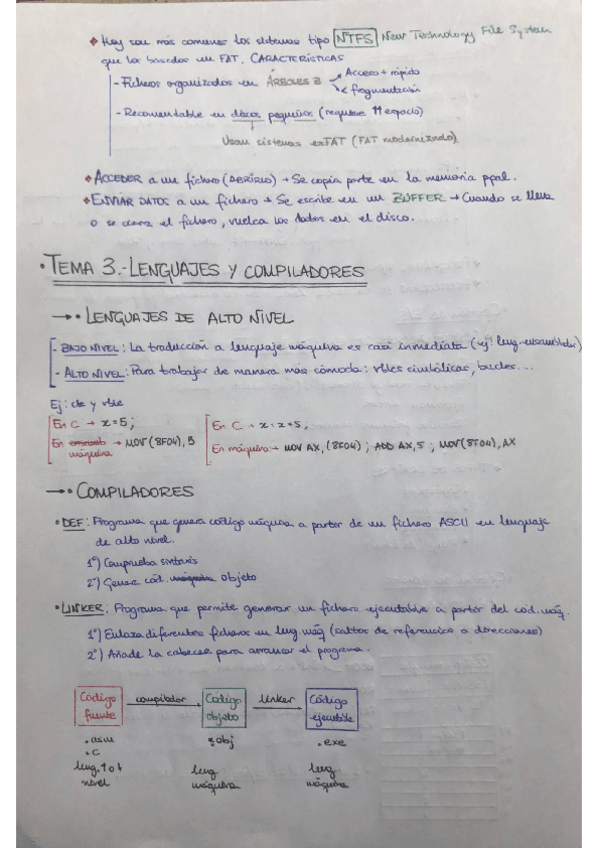 • Hoy son más comunes los sistemas tipo NTFS New Technology File System
que los basados en FAT. CARACTERÍSTICAS
- Ficheros organizados en ÁRBOLES B → Acceso + rápido
< fragmentación
- Recomendable en discos pequeños (requiere ↑↑ espacio)
Usan sistemas exFAT (FAT modernizado)
• ACCEDER a un fichero (ABRIRLO) → Se copia parte en la memoria ppal.
• ENVIAR DATOS a un fichero → Se escribe en un BUFFER → Cuando se llena
o se cierra el fichero, vuelca los datos en el disco.
• TEMA 3.- LENGUAJES Y COMPILADORES
→ • LENGUAJES DE ALTO NIVEL
- BAJO NIVEL: La traducción a lenguaje máquina es casi inmediata (ej: leng. ensamblador)
- ALTO NIVEL: Para trabajar de manera más cómoda: vbles simbólicas, bucles...
Ej: cte y vble
En C → x=5;
En máquina → MOV (8F04), 5
En C → x=x+5,
En máquina → MOV AX, (8F04) ; ADD AX,5 ; MOV(8F04), AX
→ • COMPILADORES
• DEF: Programa que genera código máquina a partir de un fichero ASCII en lenguaje
de alto nivel.
1º) Comprueba sintaxis
2º) Genera cód. objeto
• LINKER: Programa que permite generar un fichero ejecutable a partir del cód. máq.
1º) Enlaza diferentes ficheros en leng. máq (saltos de referencias a direcciones)
2º) Añade la cabecera para arrancar el programa.
Código fuente compilador → Código objeto linker → Código ejecutable
.asm .obj .exe
.C
leng. ↑ o ↓ nivel leng máquina leng máquina